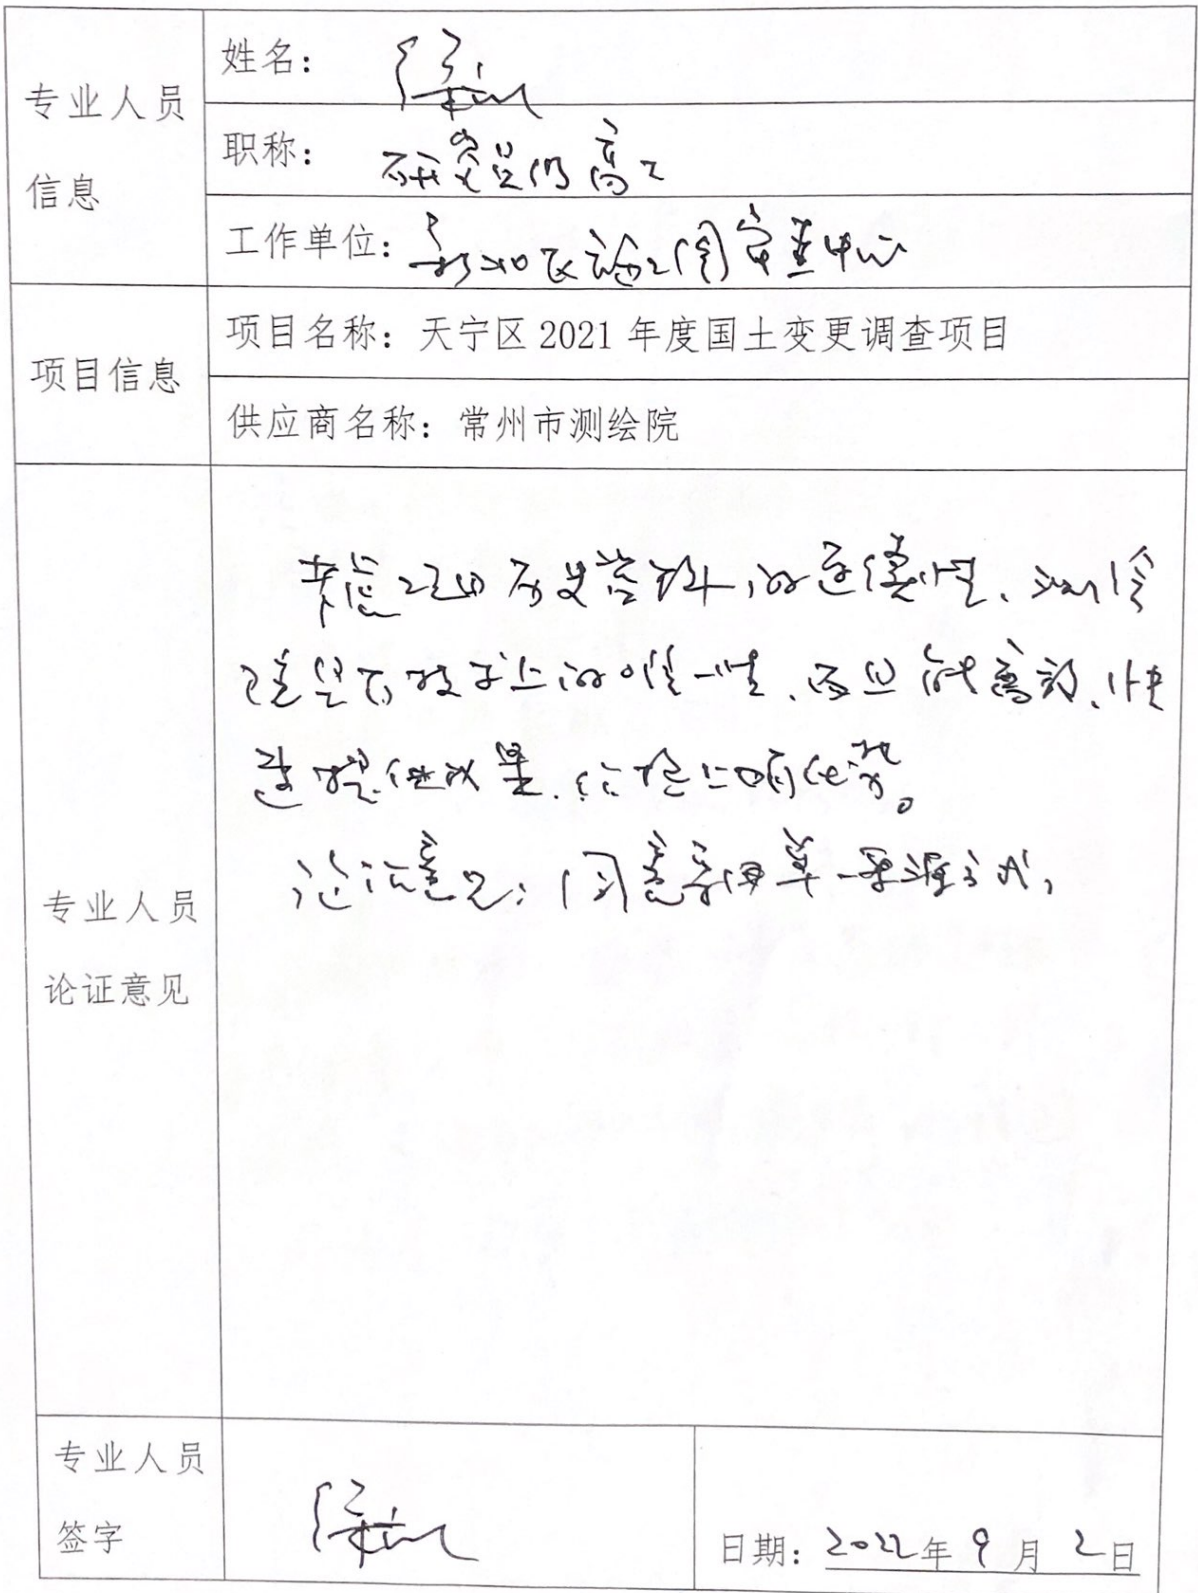 专业人员
信息
姓名：
职称： 研究员级高工
工作单位： 审查中心
项目信息
项目名称：天宁区 2021 年度国土变更调查项目
供应商名称：常州市测绘院
专业人员
论证意见
考虑 历史资料的连续性、测绘
技术上的唯一性、而且能高效、快
速提供成果、 优势。
论证意见：同意采用单一来源方式，
专业人员
签字
日期：2022年9月2日